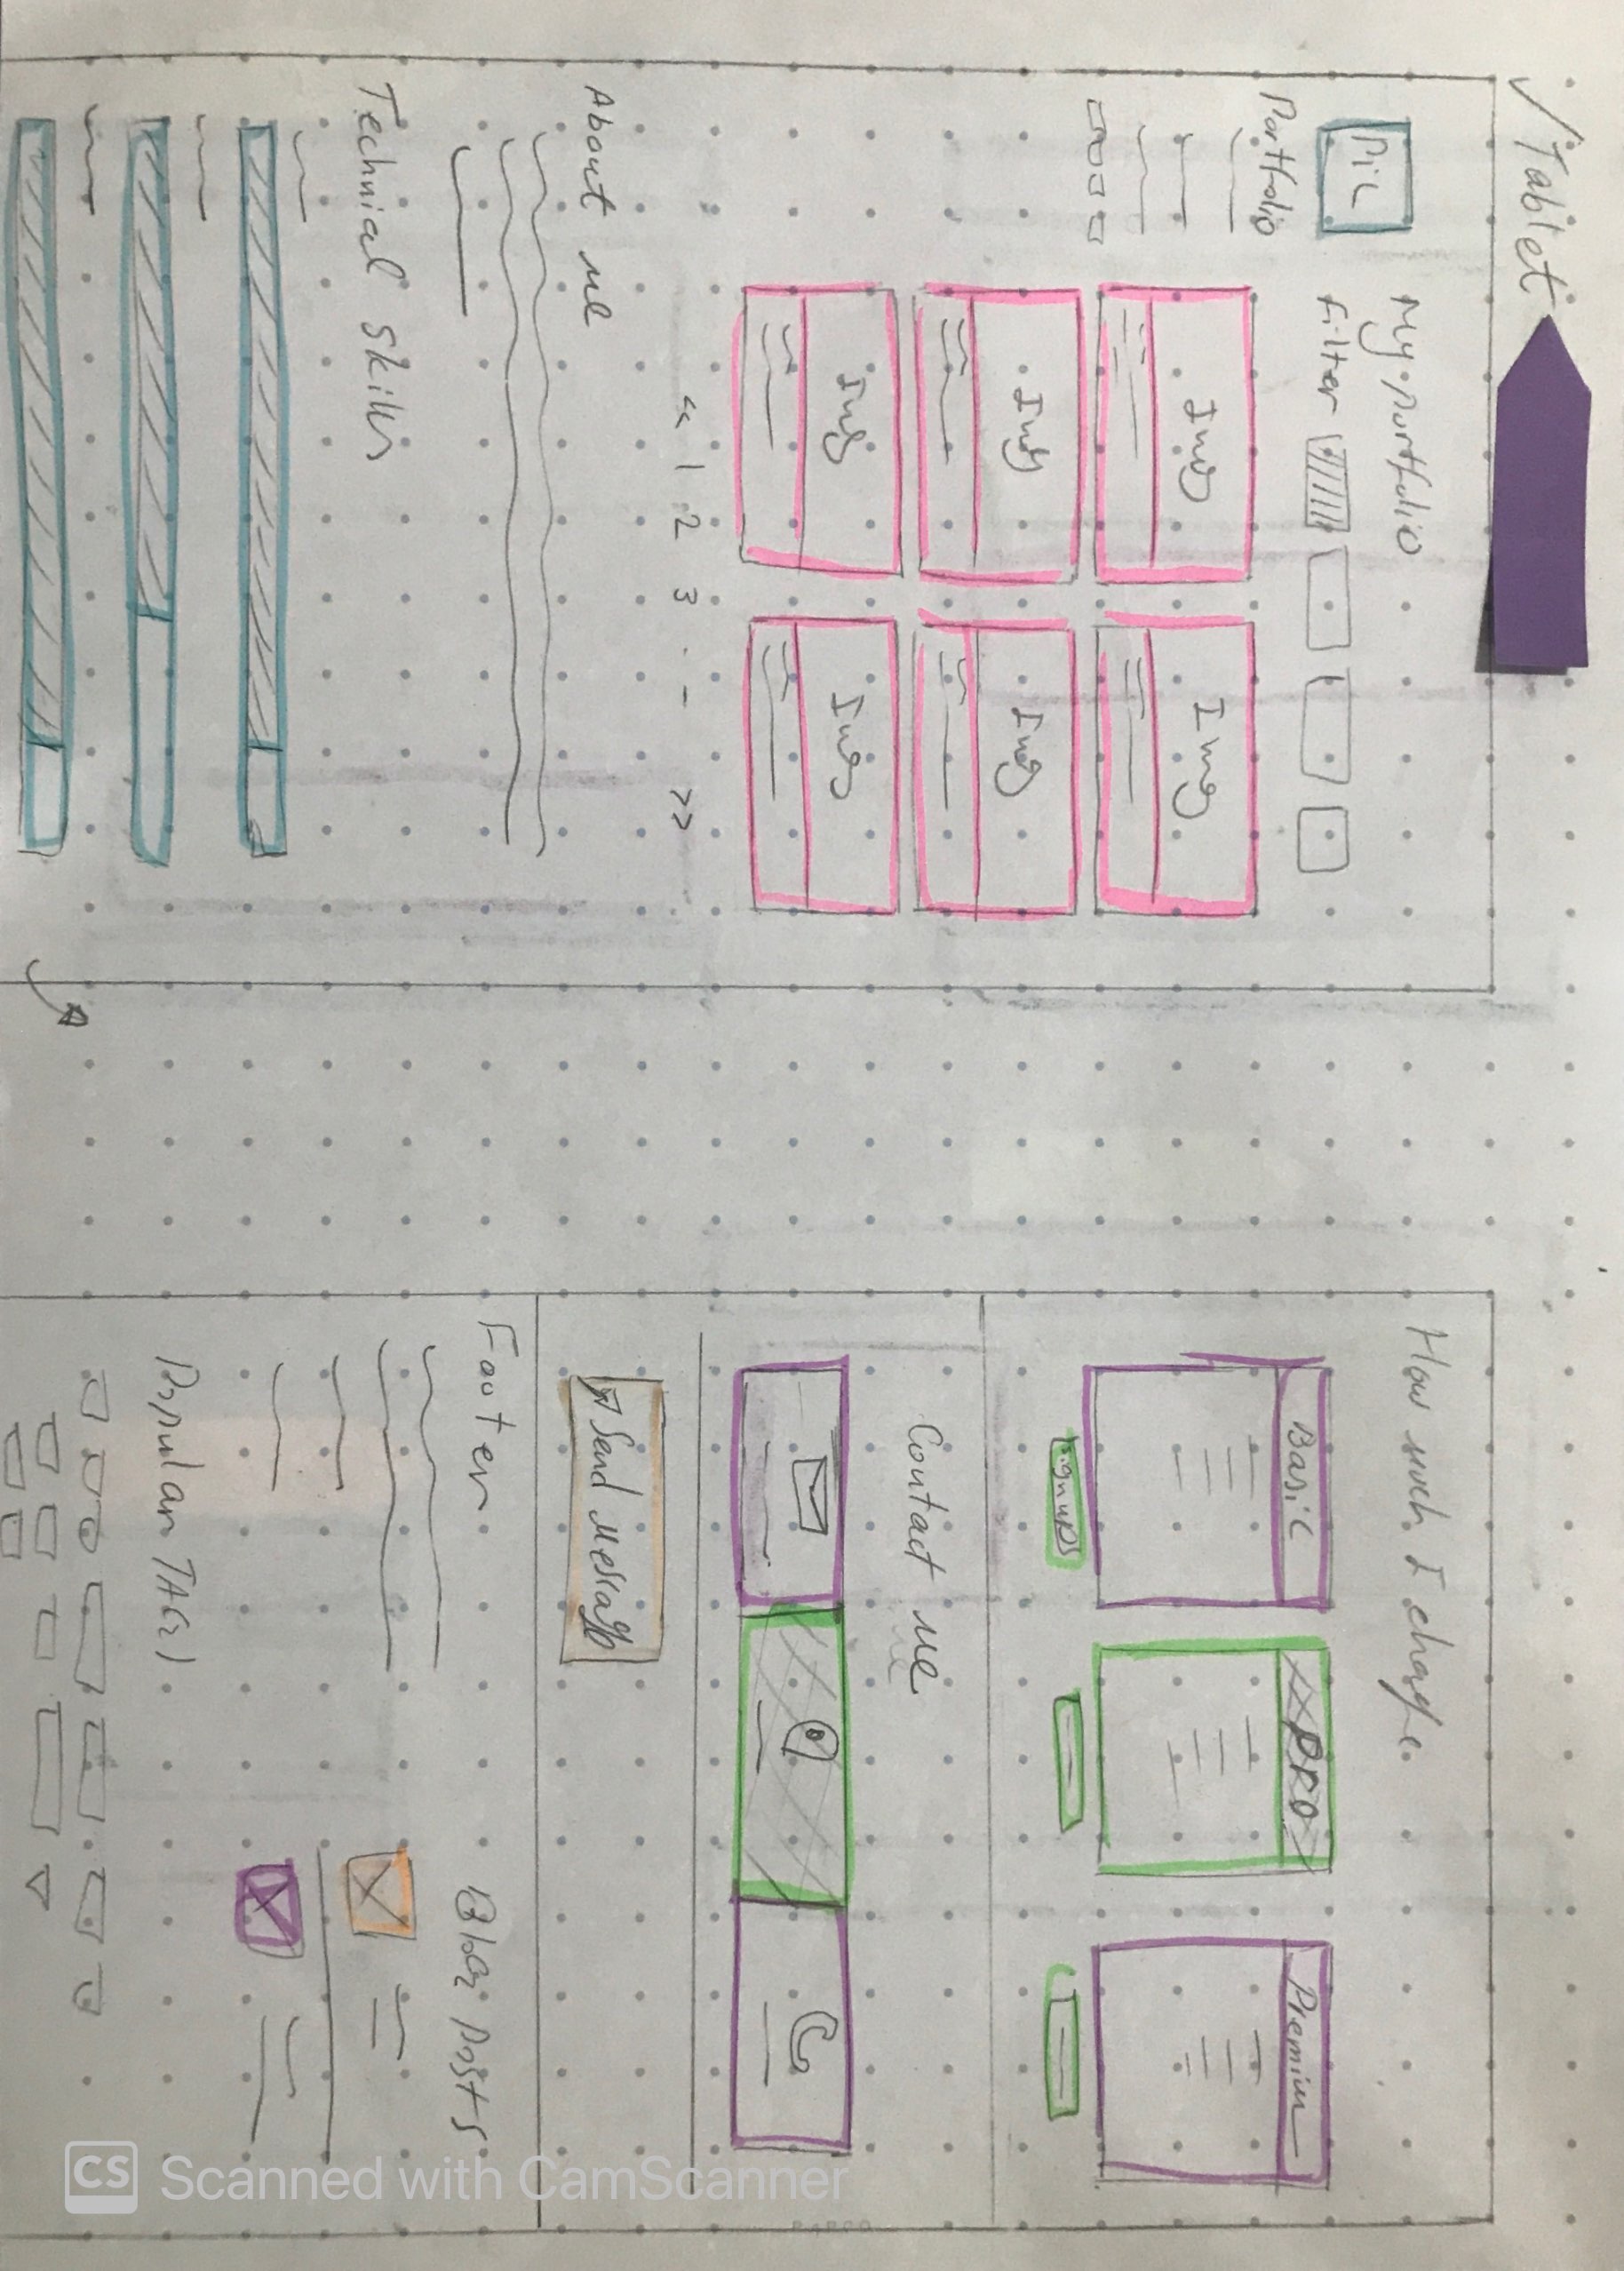 Tablet
Pic
Portfolio
My portfolio
Filter
Img
Img
Img
Img
Img
Img
« 1 2 3 . - »
About me
Technical skills
How much I charge.
Basic
PRO
Premium
Sign up
Contact me
Send Message
Footer
Blog Posts
Popular TAGS
CS Scanned with CamScanner